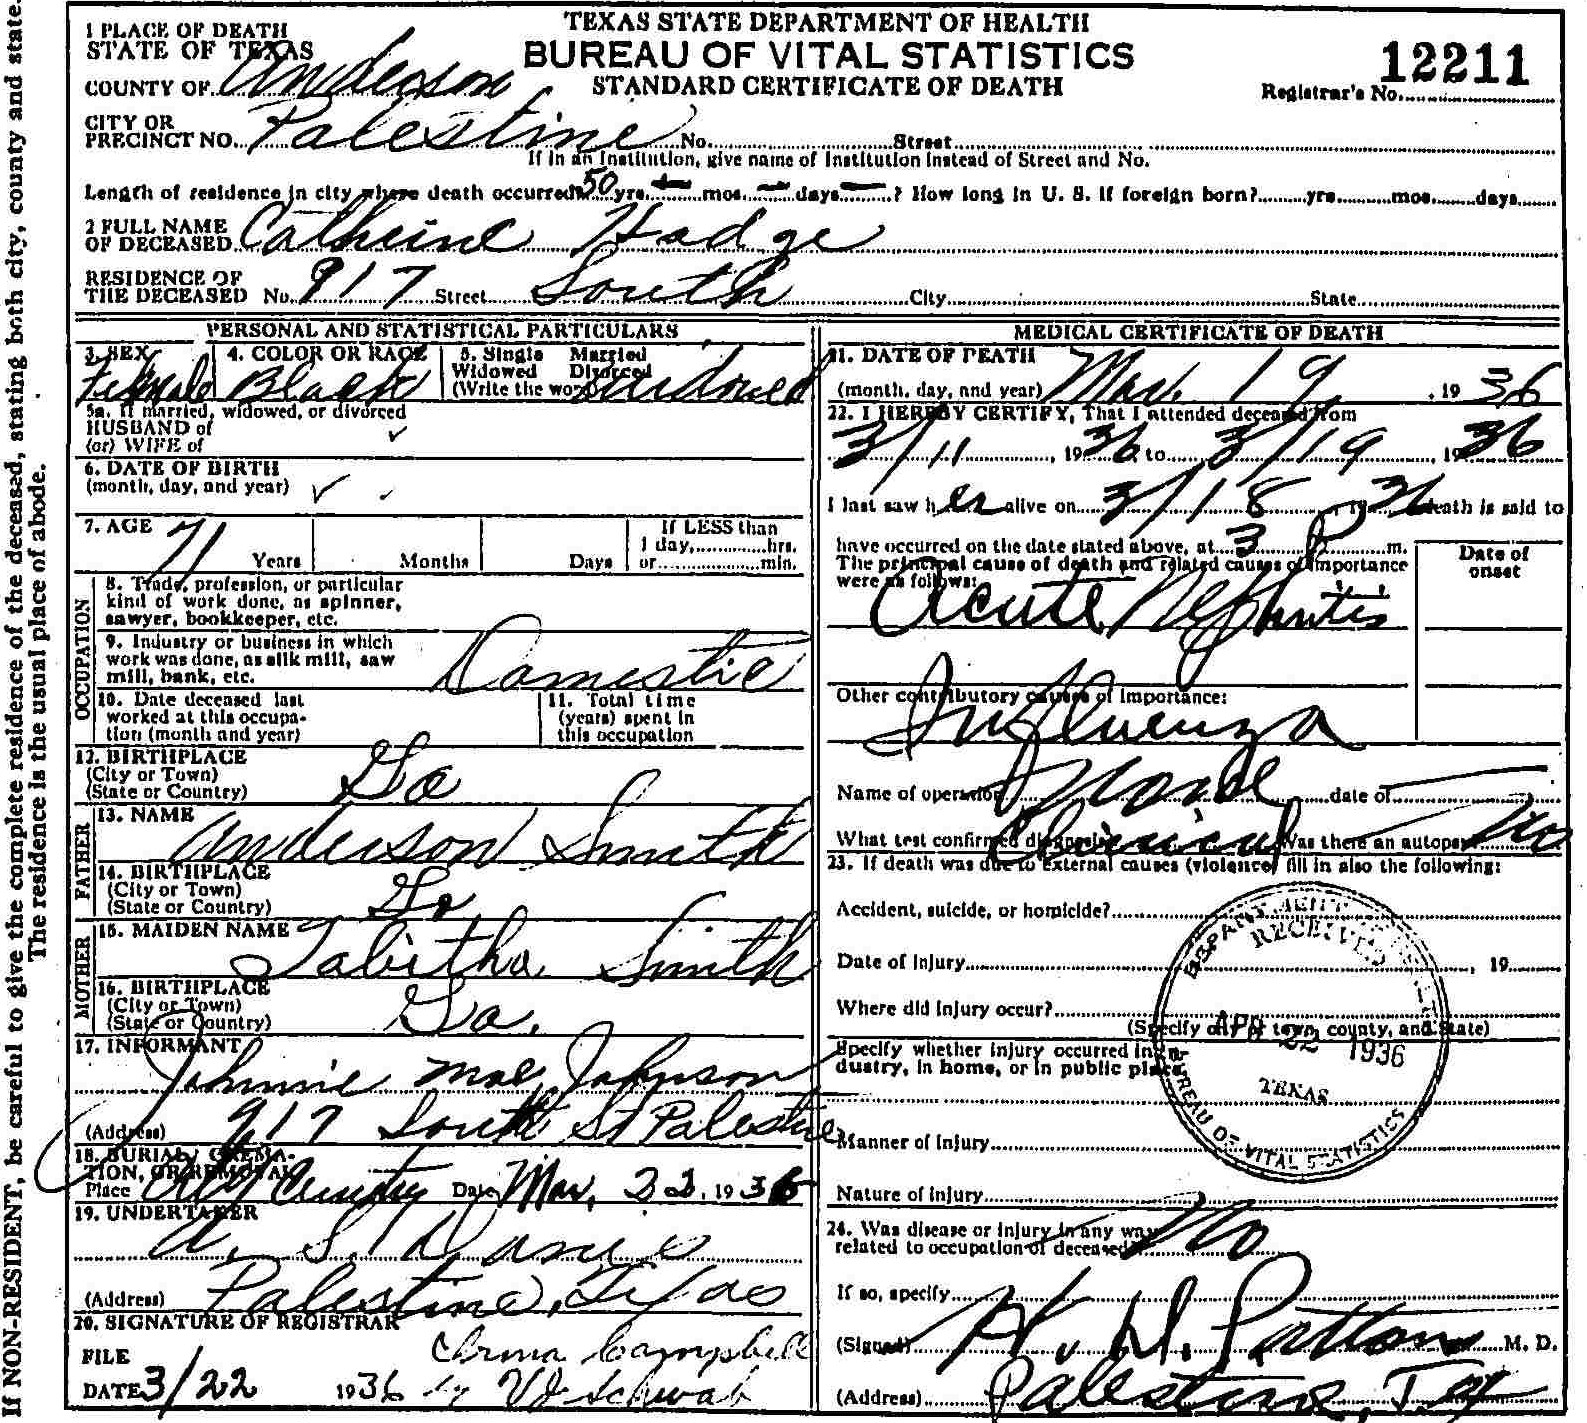 If NON-RESIDENT, be careful to give the complete residence of the deceased, stating both city, county and state.
The residence is the usual place of abode.
TEXAS STATE DEPARTMENT OF HEALTH
BUREAU OF VITAL STATISTICS
STANDARD CERTIFICATE OF DEATH
12211
Registrar's No.
1 PLACE OF DEATH
STATE OF TEXAS
COUNTY OF Anderson
CITY OR
PRECINCT NO. Palestine No. Street
If in an Institution, give name of Institution instead of Street and No.
Length of residence in city where death occurred 50 yrs. – mos. – days – ? How long in U. S. if foreign born? yrs. mos. days
2 FULL NAME
OF DECEASED Catheine Hodge
RESIDENCE OF
THE DECEASED No. 917 Street South City State
PERSONAL AND STATISTICAL PARTICULARS
3. SEX
Female
4. COLOR OR RACE
Black
5. Single Married
Widowed Divorced
(Write the word) Widowed
5a. If married, widowed, or divorced
HUSBAND of
(or) WIFE of ✓
6. DATE OF BIRTH
(month, day, and year) ✓
7. AGE 71 Years Months Days
If LESS than
1 day, hrs.
or min.
OCCUPATION
8. Trade, profession, or particular
kind of work done, as spinner,
sawyer, bookkeeper, etc.
9. Industry or business in which
work was done, as silk mill, saw
mill, bank, etc. Domestic
10. Date deceased last
worked at this occupa-
tion (month and year)
11. Total time
(years) spent in
this occupation
12. BIRTHPLACE
(City or Town)
(State or Country) Ga
FATHER
13. NAME
Anderson Smith
14. BIRTHPLACE
(City or Town)
(State or Country) Ga
MOTHER
15. MAIDEN NAME
Tabitha Smith
16. BIRTHPLACE
(City or Town)
(State or Country) Ga.
17. INFORMANT
Johnnie Mae Johnson
(Address) 917 South St Palestine
18. BURIAL, CREMA-
TION, OR REMOVAL
Place Date Mar. 22, 1936
19. UNDERTAKER
(Address) Palestine, Texas
20. SIGNATURE OF REGISTRAR
Erma Campbell
FILE
DATE 3/22 1936 by VJ Schwab
MEDICAL CERTIFICATE OF DEATH
21. DATE OF DEATH
(month, day, and year) Mar. 19, 1936
22. I HEREBY CERTIFY, That I attended deceased from
3/11, 1936 to 3/19, 1936
I last saw her alive on 3/18, 1936 death is said to
have occurred on the date stated above, at 3 P m.
The principal cause of death and related causes of importance
were as follows:
Date of
onset
Acute Nephritis
Other contributory causes of importance:
Influenza
Name of operation None date of
What test confirmed diagnosis Clinical Was there an autopsy No
23. If death was due to external causes (violence) fill in also the following:
Accident, suicide, or homicide?
Date of injury , 19
Where did injury occur?
(Specify city or town, county, and State)
Specify whether injury occurred in in-
dustry, in home, or in public place.
Manner of injury
Nature of injury
RECEIVED
APR 22 1936
TEXAS
BUREAU OF VITAL STATISTICS
24. Was disease or injury in any way
related to occupation of deceased? No
If so, specify
(Signed) H. H. Patton M. D.
(Address) Palestine, Tex